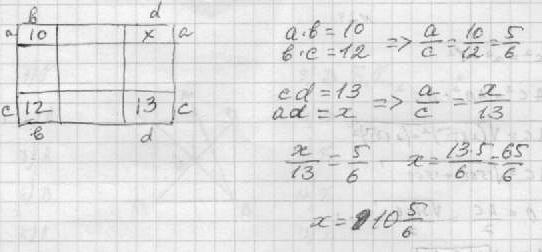 b d
a 10 x a
c 12 13 c
b d
a·b = 10
b·c = 12 => a/c = 10/12 = 5/6
cd = 13
ad = x => a/c = x/13
x/13 = 5/6 x = 13·5/6 = 65/6
x = 10 5/6